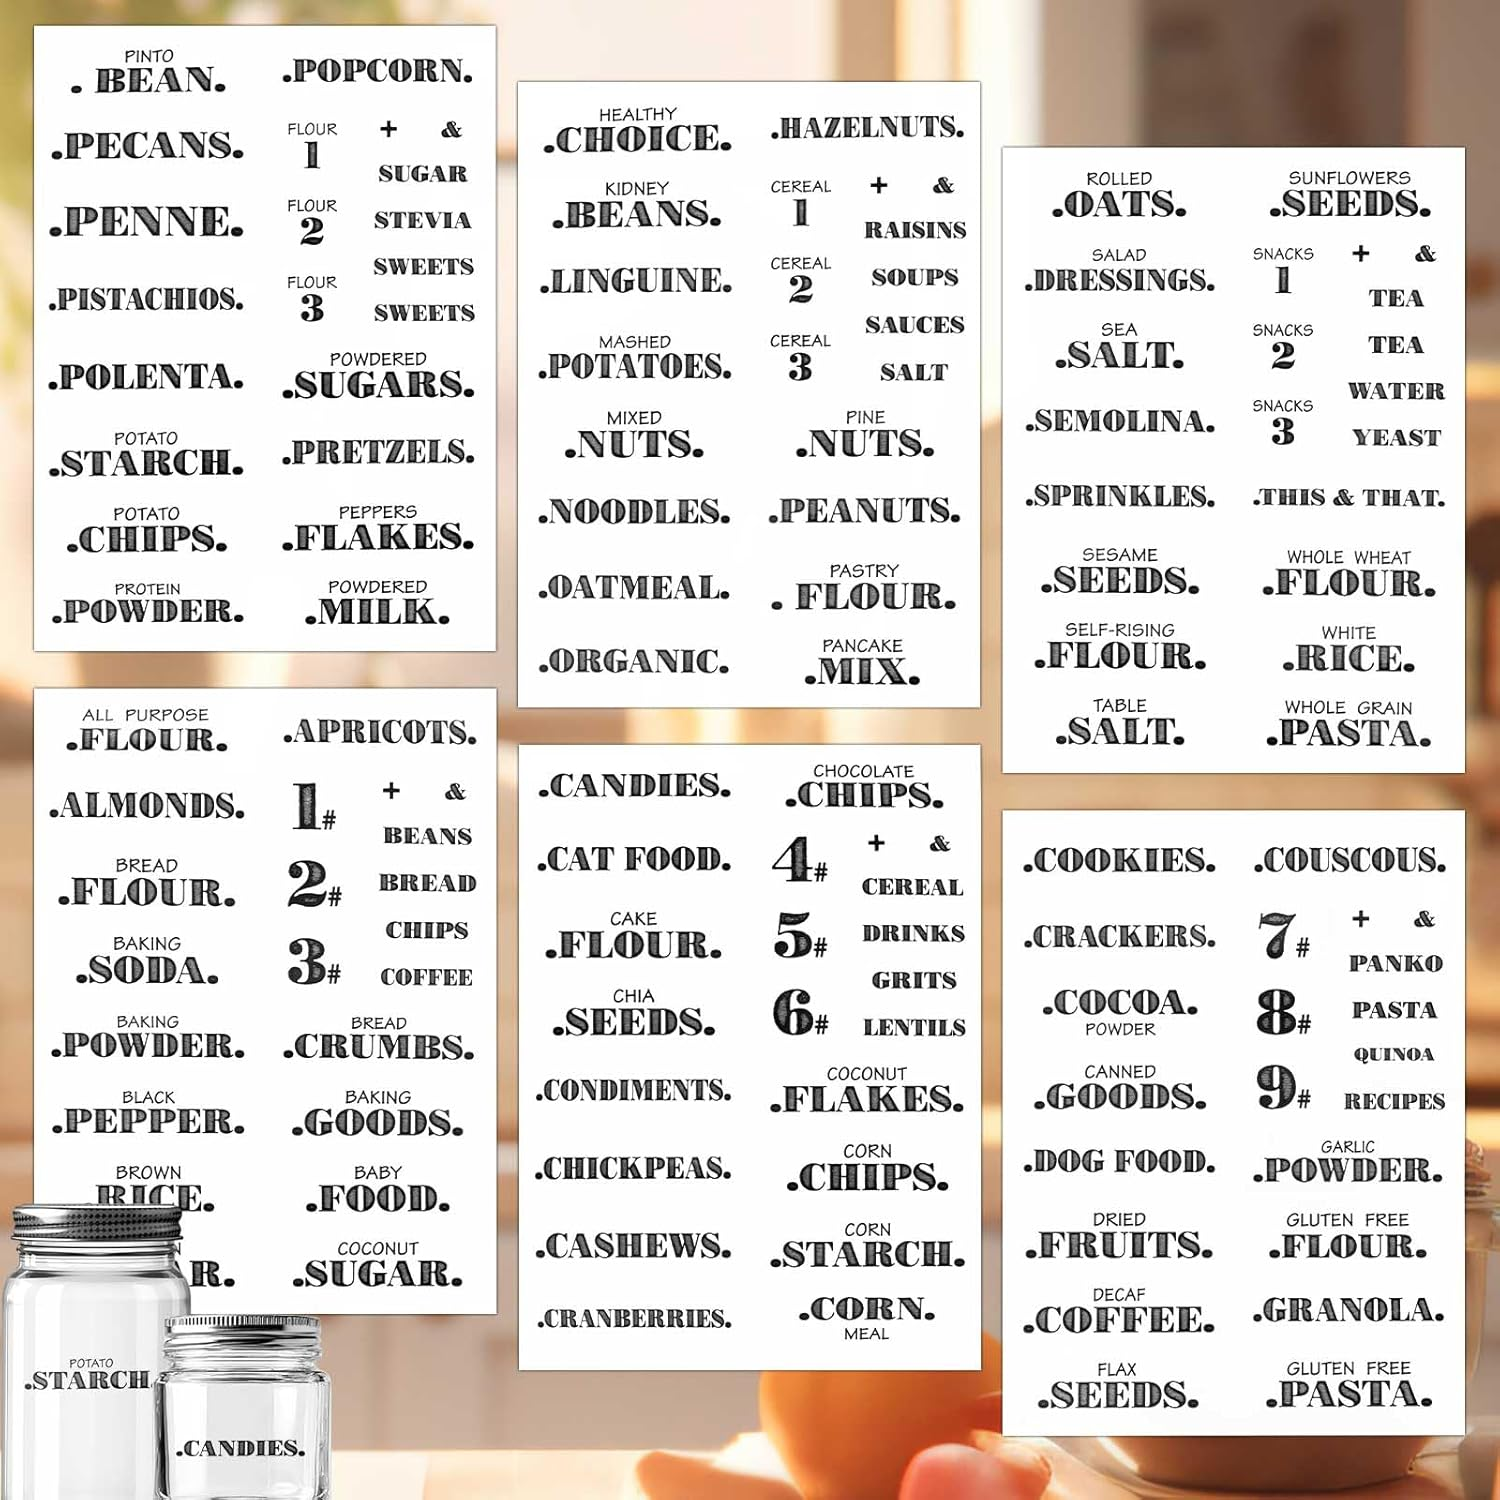 PINTO
. BEAN.
.PECANS.
.PENNE.
.PISTACHIOS.
.POLENTA.
POTATO
.STARCH.
POTATO
.CHIPS.
PROTEIN
.POWDER.
.POPCORN.
FLOUR
1
FLOUR
2
FLOUR
3
+ &
SUGAR
STEVIA
SWEETS
SWEETS
POWDERED
.SUGARS.
.PRETZELS.
PEPPERS
.FLAKES.
POWDERED
.MILK.
HEALTHY
.CHOICE.
KIDNEY
.BEANS.
.LINGUINE.
MASHED
.POTATOES.
MIXED
.NUTS.
.NOODLES.
.OATMEAL.
.ORGANIC.
.HAZELNUTS.
CEREAL
1
CEREAL
2
CEREAL
3
+ &
RAISINS
SOUPS
SAUCES
SALT
PINE
.NUTS.
.PEANUTS.
PASTRY
. FLOUR.
PANCAKE
.MIX.
ROLLED
.OATS.
SALAD
.DRESSINGS.
SEA
.SALT.
.SEMOLINA.
.SPRINKLES.
SESAME
.SEEDS.
SELF-RISING
.FLOUR.
TABLE
.SALT.
SUNFLOWERS
.SEEDS.
SNACKS
1
SNACKS
2
SNACKS
3
+ &
TEA
TEA
WATER
YEAST
.THIS & THAT.
WHOLE WHEAT
.FLOUR.
WHITE
.RICE.
WHOLE GRAIN
.PASTA.
ALL PURPOSE
.FLOUR.
.ALMONDS.
BREAD
.FLOUR.
BAKING
.SODA.
BAKING
.POWDER.
BLACK
.PEPPER.
BROWN
.RICE.
R.
.APRICOTS.
1#
2#
3#
+ &
BEANS
BREAD
CHIPS
COFFEE
BREAD
.CRUMBS.
BAKING
.GOODS.
BABY
.FOOD.
COCONUT
.SUGAR.
.CANDIES.
.CAT FOOD.
CAKE
.FLOUR.
CHIA
.SEEDS.
.CONDIMENTS.
.CHICKPEAS.
.CASHEWS.
.CRANBERRIES.
CHOCOLATE
.CHIPS.
4#
5#
6#
+ &
CEREAL
DRINKS
GRITS
LENTILS
COCONUT
.FLAKES.
CORN
.CHIPS.
CORN
.STARCH.
.CORN.
MEAL
.COOKIES.
.CRACKERS.
.COCOA.
POWDER
CANNED
.GOODS.
.DOG FOOD.
DRIED
.FRUITS.
DECAF
.COFFEE.
FLAX
.SEEDS.
.COUSCOUS.
7#
8#
9#
+ &
PANKO
PASTA
QUINOA
RECIPES
GARLIC
.POWDER.
GLUTEN FREE
.FLOUR.
.GRANOLA.
GLUTEN FREE
.PASTA.
POTATO
.STARCH.
.CANDIES.